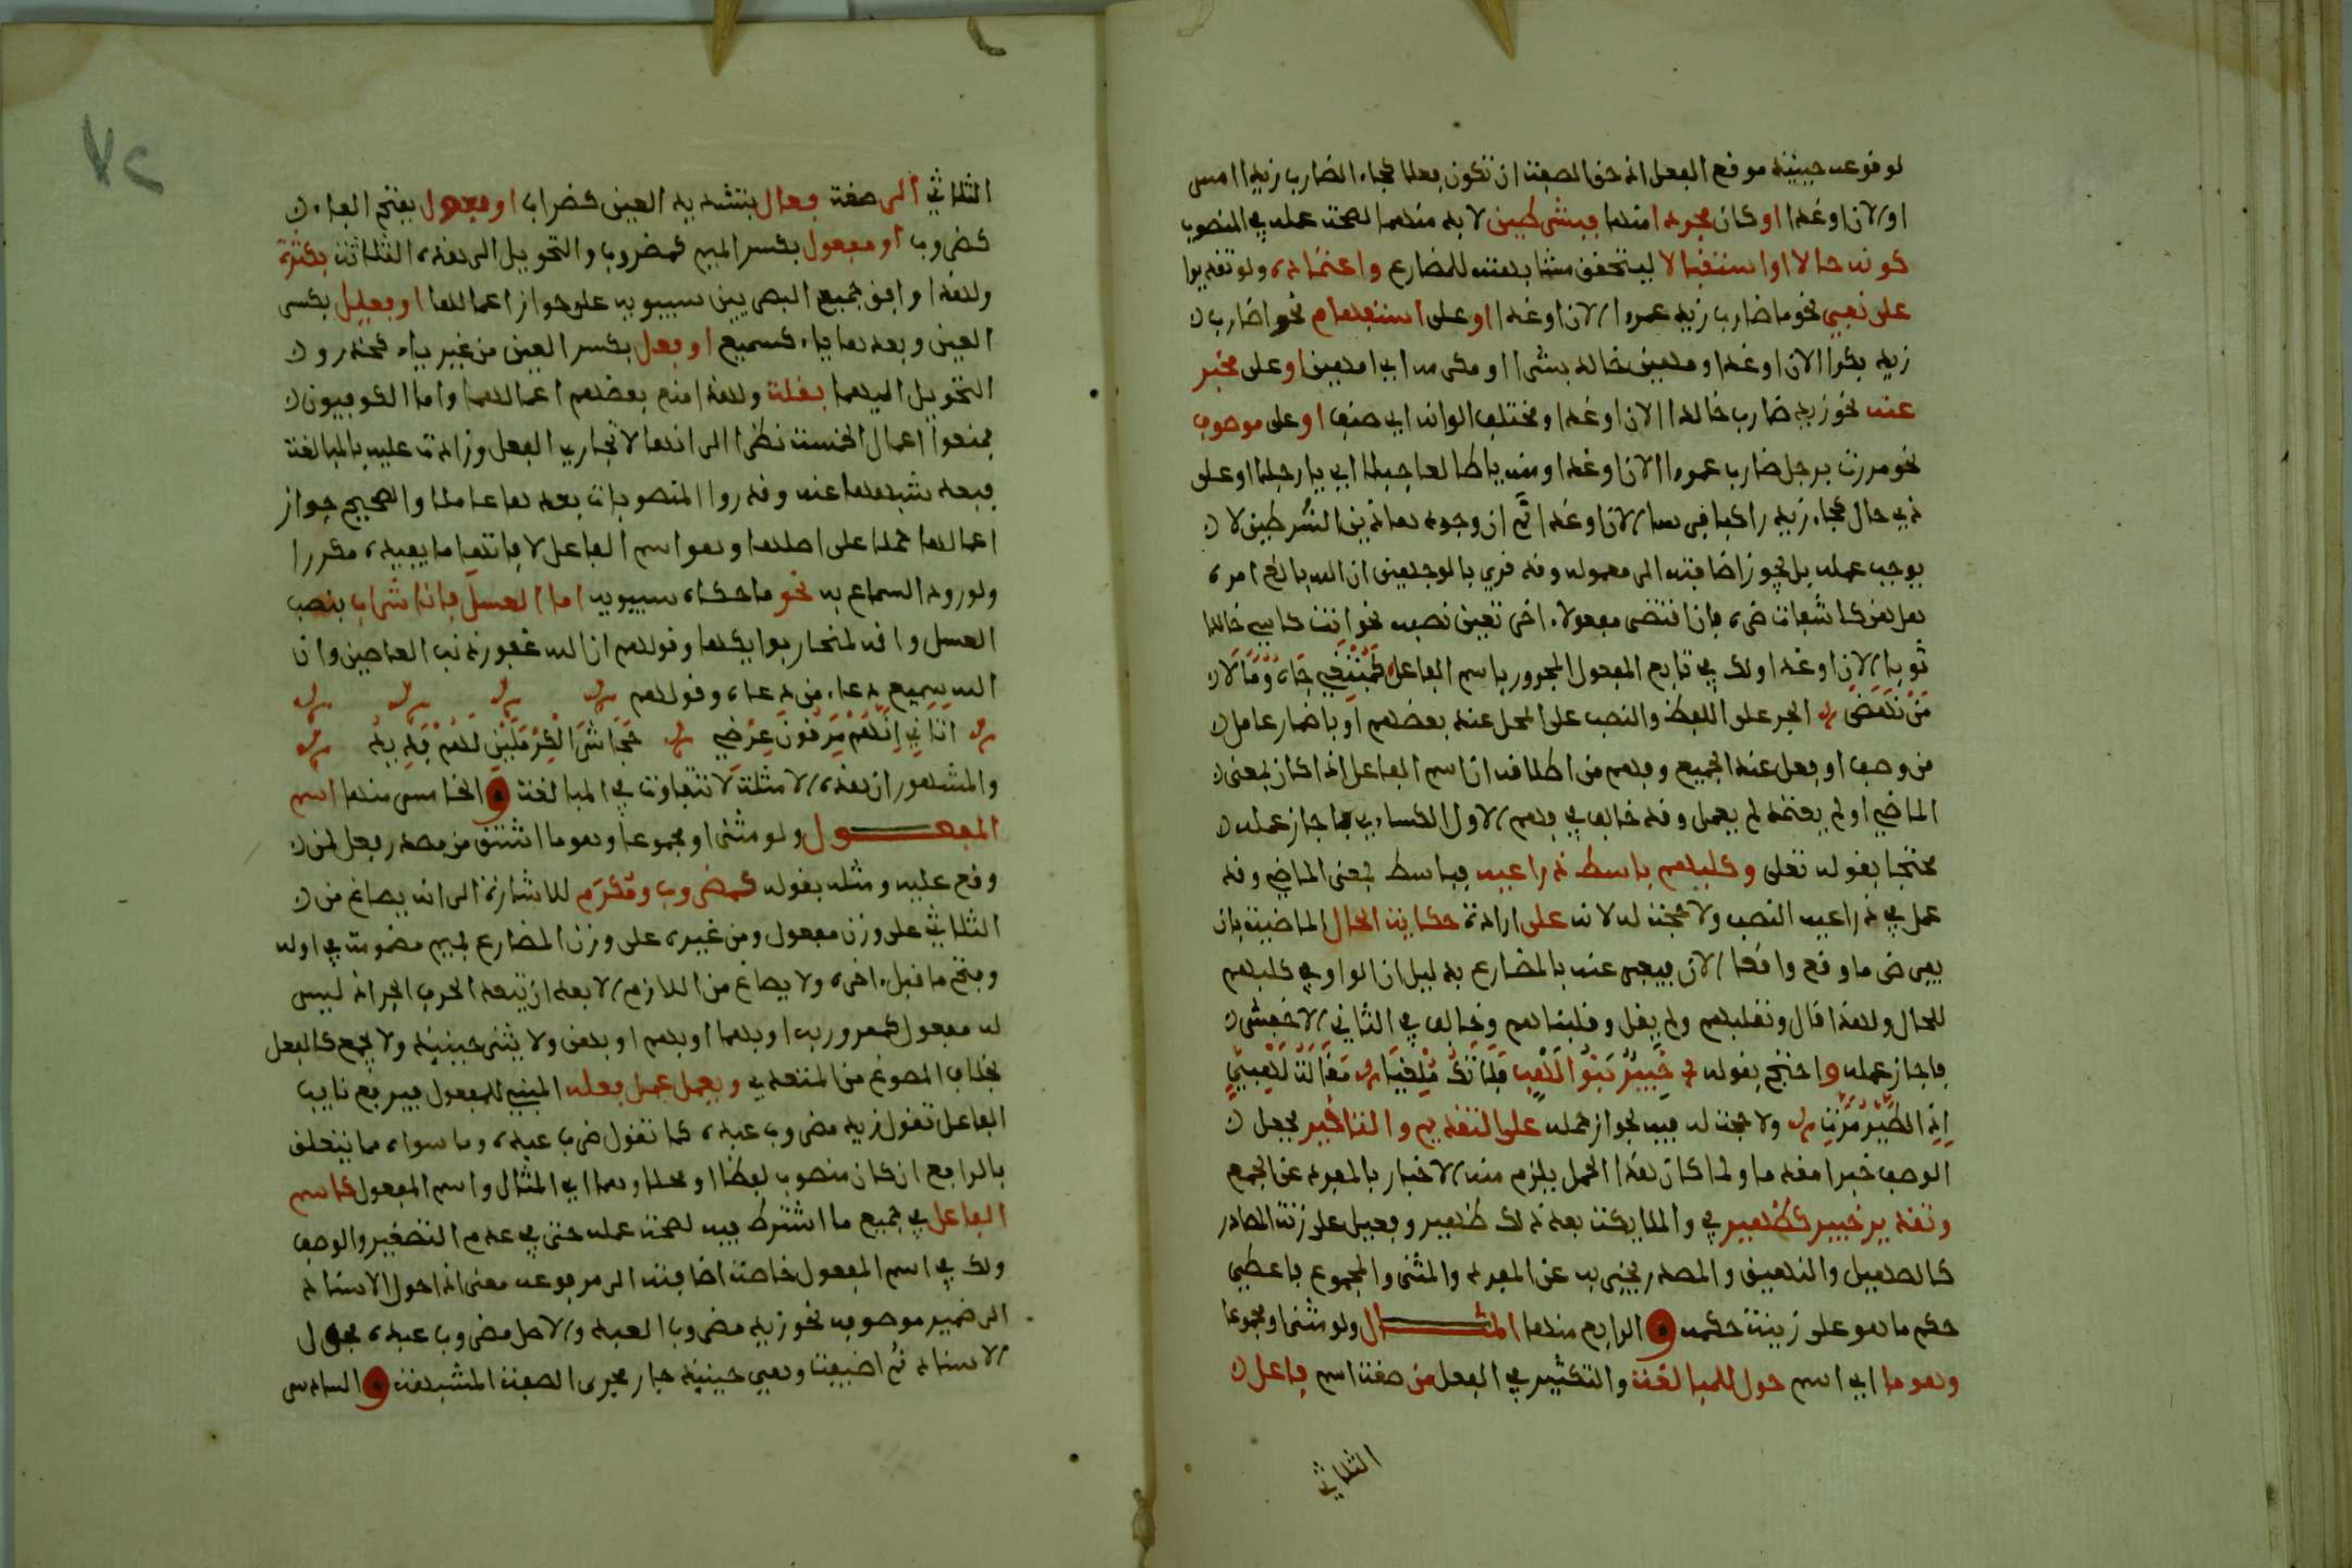 لوقوعه حينئذ موقع الفعل اذ حق الصفة ان تكون فعلا كجاء الضارب زيدا امس
او الان او غدا او كان مجردا منها فبشرطين لا بد منهما لصحة عمله في المنصوب
كونه حالا او استقبالا ليتحقق مشابهته للمضارع واعتماده ولو تقديرا
على نفي نحو ما ضارب زيد عمرا الان او غدا او على استفهام نحو اضارب
زيد بكرا الان او غدا ومهين خالد بشرا او مكرمه اي امهين او على مخبر
عنه نحو زيد ضارب خالدا الان او غدا ومختلف الوانه اي صنف او على موصوف
نحو مررت برجل ضارب عمرا الان او غدا ومنه يا طالعا جبلا اي يا رجلا او على
ذي حال كجاء زيد راكبا فرسا الان او غدا ثم ان وجود هاذين الشرطين لا
يوجب عمله بل يجوز اضافته الى معموله وقد قري بالوجهين ان الله بالغ امره
هل هن كاشفات ضره فان اقتضى مفعولا اخر تعين نصبه نحو انت كاسي خالد
ثوبا الان او غدا ولك في تابع المفعول المجرور باسم الفاعل كمبتغي جاه ومالا
من نهض الجر على اللفظ والنصب على المحل عند بعضهم او باضمار عامل
من وصف او فعل عند الجميع وفهم من اطلاقه ان اسم الفاعل اذا كان بمعنى
الماضي او لم يعتمد لم يعمل وقد خالف في فهم الاول الكساءي فاجاز عمله
محتجا بقوله تعلى وكلبهم باسط ذراعيه فباسط بمعنى الماضي وقد
عمل في ذراعيه النصب ولا حجة له لانه على ارادة حكاية الحال الماضية بان
يفرض ما وقع واقعا الان فيعبر عنه بالمضارع بدليل ان الواو في كلبهم
للحال ولهذا قال ونقلبهم ولم يقل وقلبناهم وخالف في الثاني الاخفش
فاجاز عمله واحتج بقوله خَبِيرٌ بَنُو لِهْبٍ فَلَا تَكُ مُلْغِيًا مَقَالَةَ لِهْبِيٍّ
اِذِ الطَّيْرُ مَرَّتِ ولا حجة له فيه لجواز حمله على التقديم والتاخير بجعل
الوصف خبرا مقدما ولما كان هذا الحمل يلزم منه الاخبار بالمفرد عن الجمع
وتقدير خبير كظهير في والملايكة بعد ذلك ظهير وفعيل على زنة المصادر
كالصهيل والنهيق والمصدر يخبر به عن المفرد والمثنى والمجموع فاعطي
حكم ما هو على زنته حكمه و الرابع منها المثـــال ولو مثنى او مجموعا
وهو ما اي اسم حول للمبالغة والتكثير في الفعل من صفة اسم فاعل
الثلاثي
٧٢
الثلاثي الى صفة فعال بتشديد العين كضراب او فعول بفتح الفاء
كضروب او مفعول بكسر الميم كمضروب والتحويل الى هذه الثلاثة بكثرة
ولهذا وافق جميع البصريين سيبويه على جواز اعمالها او فعيل بكسر
العين وبعدها ياء كسميع او فعل بكسر العين من غير ياء كحذر و
التحويل اليهما بقلة ولهذا منع بعضهم اعمالهما واما الكوفيون
فمنعوا اعمال الخمسة نظرا الى انها لا تجاري الفعل وزادت عليه بالمبالغة
فبعد شبهها عنه وقدروا المنصوبات بعدها عاملا والصحيح جواز
اعمالها حملا على اصلها وهو اسم الفاعل لافادتها ما يفيده مكررا
ولورود السماع به نحو ما حكاه سيبويه اما العسل فانا شراب بنصب
العسل وانه لمنحار بوايكها وقولهم ان الله غفور ذنب العاصين وان
الله سميع دعاء من دعاه وقولهم
اتاني اَنَّهُمْ مَزِقُونَ عِرْضِي جِحَاشُ الْكِرْمَلَيْنِ لَهُمْ فَدِيدُ
والمشهور ان هذه الامثلة لا تتفاوت في المبالغة و الخامس منها اسم
المفعــــول ولو مثنى او مجموعا وهو ما اشتق من مصدر فعل لمن
وقع عليه ومثله بقوله كمضروب ومُكرَم للاشارة الى انه يصاغ من
الثلاثي على وزن مفعول ومن غيره على وزن المضارع بميم مضمومة في اوله
وبفتح ما قبل اخره ولا يصاغ من اللازم الا بعد ان يتبعه الحرف الجر اذ ليس
له مفعول كممرور به او بهما او بهم او بهن ولا يثنى حينئذ ولا يجمع كالفعل
بخلاف المصوغ من المتعدي ويعمل عمل فعله المبني للمفعول فيرفع نايب
الفاعل تقول زيد مضروب عبده كما تقول ضرب عبده وما سواه مما يتعلق
بالرافع ان كان منصوب لفظا او محلا وهما اي المثال واسم المفعول كاسم
الفاعل في جميع ما اشترط فيه لصحة عمله حتى في عدم التصغير والوصف
ولك في اسم المفعول خاصة اضافته الى مرفوعه معنى اذا حول الاسناد
الى ضمير موصوفه نحو زيد مضروب العبد والاصل مضروب عبده فحول
الاسناد ثم اضيفت وهي حينئذ جار مجرى الصفة المشبهة و السادس